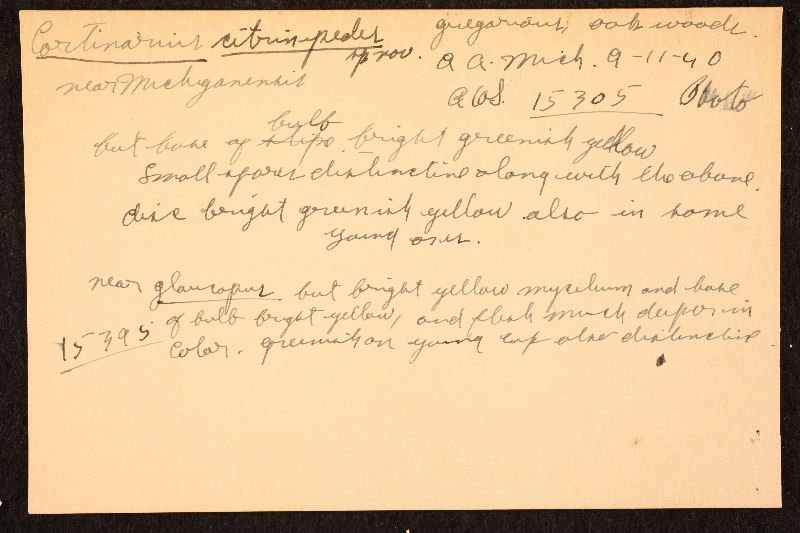 Cortinarius citrinipedes
sp nov.
gregarious, oak woods.
near Michiganensis
A A. Mich. 9-11-40
AHS. 15305 Photo
bulb
but base of stipe bright greenish yellow
Small spores distinctive along with the above.
disc bright greenish yellow also in some
young ones.
near glaucopus but bright yellow mycelium and base
of bulb bright yellow, and flesh much deeper in
15395 color. greenish on young cap also distinctive.